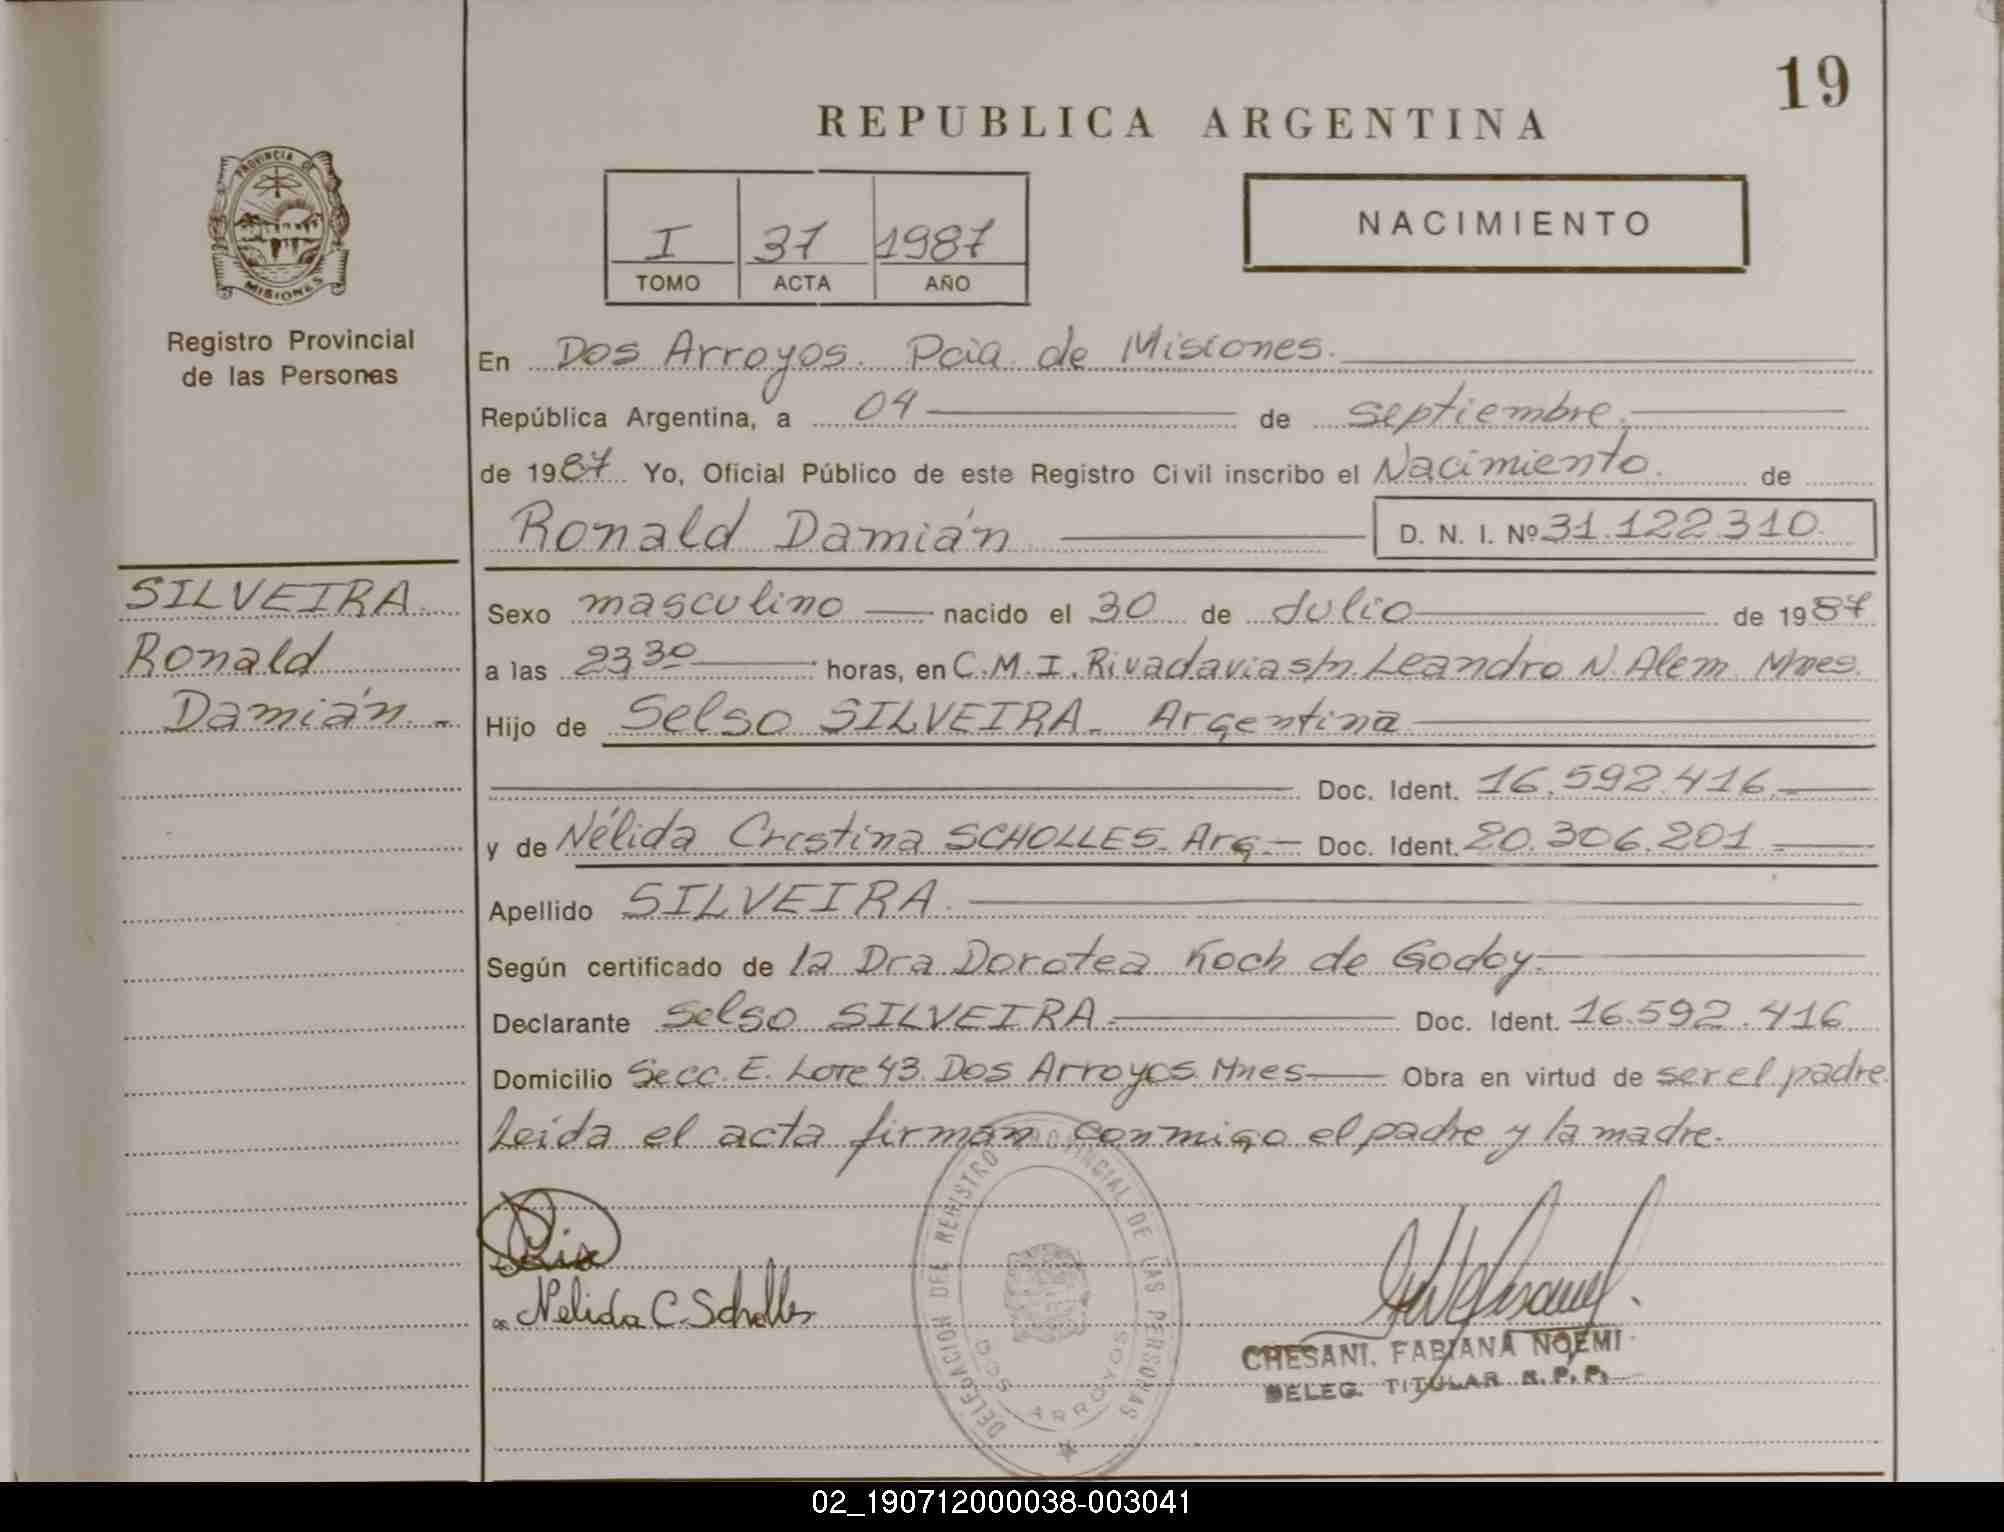 19
REPUBLICA ARGENTINA
PROVINCIA DE
MISIONES
Registro Provincial
de las Personas
I 37 1987
TOMO ACTA AÑO
NACIMIENTO
En Dos Arroyos. Pcia. de Misiones.
República Argentina, a 04 de septiembre.
de 1987 Yo, Oficial Público de este Registro Civil inscribo el Nacimiento. de
Ronald Damián D. N. I. Nº 31.122.310.
SILVEIRA
Ronald
Damián.-
Sexo masculino nacido el 30 de Julio de 1987
a las 23 30 horas, en C.M.I. Rivadavia s/n. Leandro N. Alem. Mnes.
Hijo de Selso SILVEIRA- Argentina
Doc. Ident. 16.592.416.
y de Nélida Cristina SCHOLLES- Arg.- Doc. Ident. 20.306.201.
Apellido SILVEIRA.
Según certificado de la Dra Dorotea Koch de Godoy.
Declarante Selso SILVEIRA. Doc. Ident. 16.592.416
Domicilio Secc. E. Lote 43. Dos Arroyos. Mnes Obra en virtud de ser el padre
Leida el acta firman conmigo el padre y la madre.
Nelida C. Scholles
DELEGACION DEL REGISTRO PROVINCIAL DE LAS PERSONAS
DOS ARROYOS
CHESANI, FABIANA NOEMI
DELEG. TITULAR R.P.P.
02_190712000038-003041